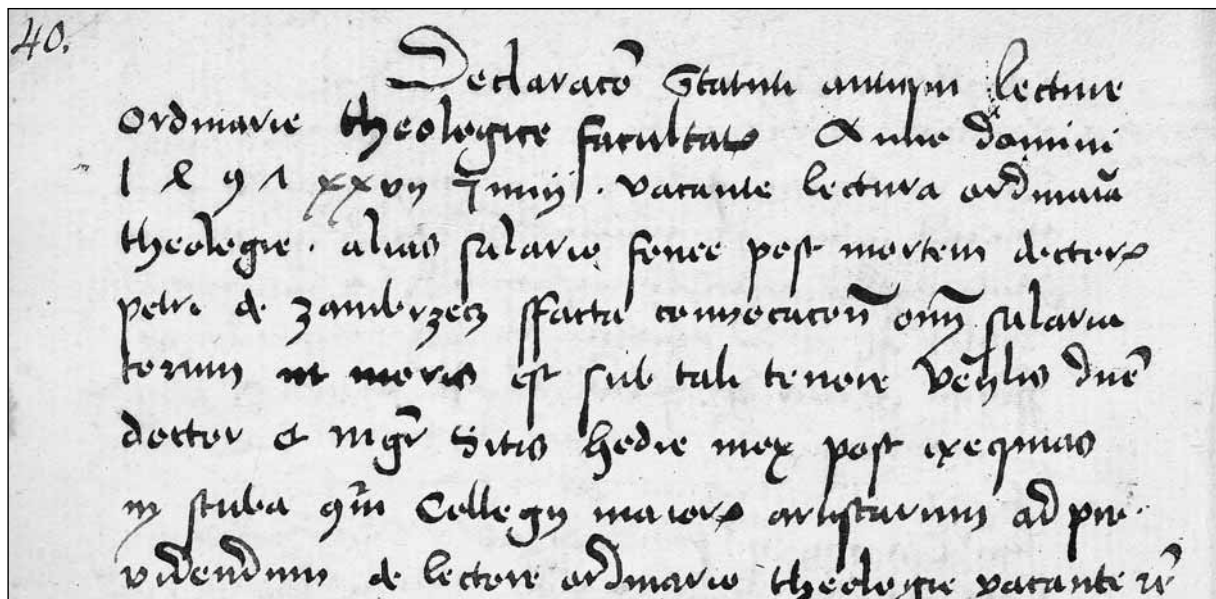 40.
Declaracō Statuti antiqui lecture
ordinarie theologice facultatꝭ Anno domini
1 4 9 7 xxvij Junij. vacante lectura ordinaria
theologie. alias salario fence post mortem doctorꝭ
petri de Zambrzecz ffacta convocacōn om̄ salaria
torum ut moris est sub tali tenore Ven̄lis dn̄e
doctor et mgr̄ Sitis hodie mox post exequias
in stuba cōi Collegij maiorꝭ artistarum ad pro
videndum de lectore ordinario theologie vacante